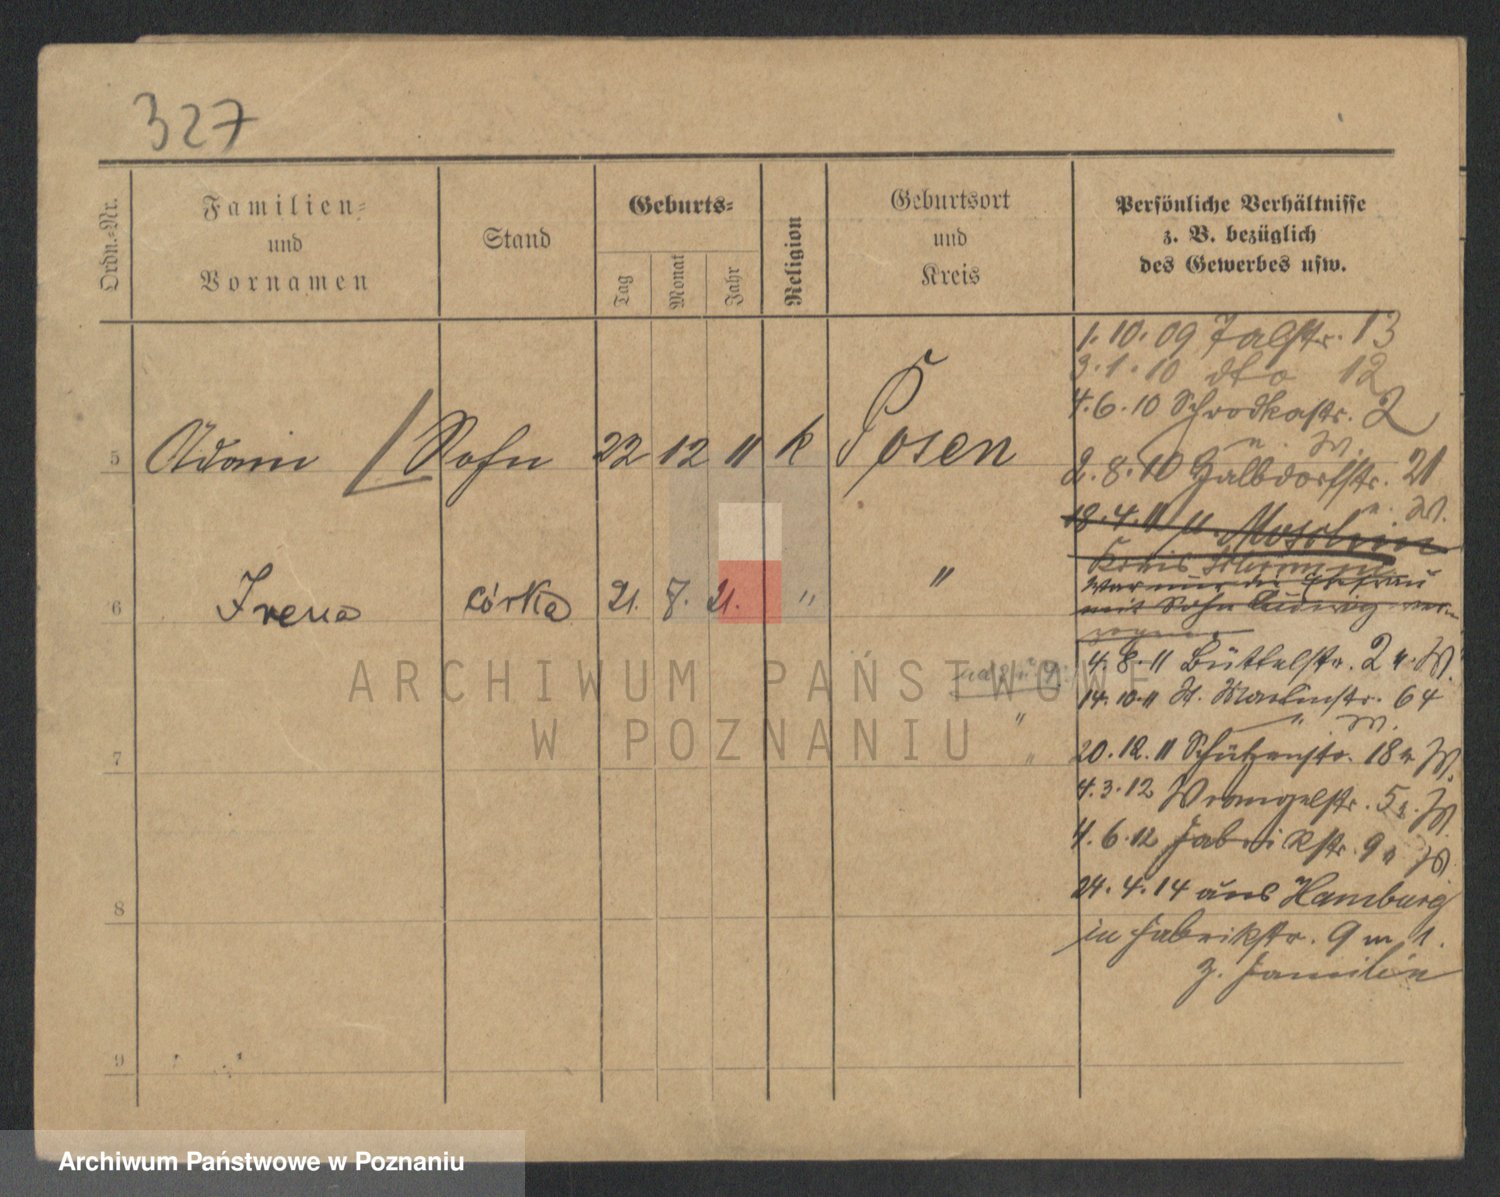 327
Ordn.-Nr.
Familien-
und
Vornamen
Stand
Geburts-
Tag
Monat
Jahr
Religion
Geburtsort
und
Kreis
Persönliche Verhältnisse
z. B. bezüglich
des Gewerbes usw.
1.10.09 Talstr. 13
3.1.10 dto 12
4.6.10 Schrodkastr. 2
u. W.
5 Adam Sohn 22 12 11 k Posen
2.8.10 Halbdorfstr. 21
u. W.
18.4.11 n.
Kreis
war nur die Ehefrau
mit Sohn Ludwig
6 Irena córka 21. 8. 21. " "
4.8.11 Büttelstr. 2 u. W.
14.10.11 St. Martinstr. 64
" W.
7 "
20.12.11 Schützenstr. 18 u. W.
4.3.12 Wrangelstr. 5 u. W.
4.6.12 Fabrikstr. 9 u W
24.4.14 aus Hamburg
8
in Fabrikstr. 9 m 1.
z. Familie
9
ARCHIWUM PAŃSTWOWE
W POZNANIU
Archiwum Państwowe w Poznaniu